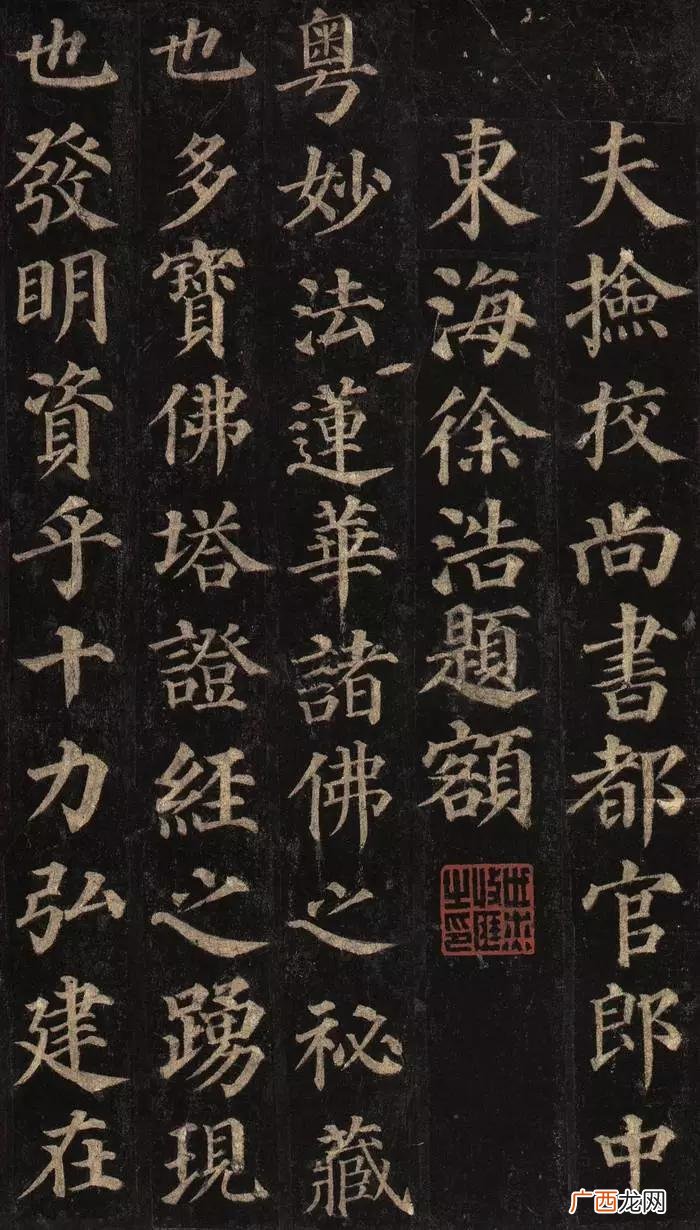 夫撿挍尚書都官郎中
東海徐浩題額
粵妙法蓮華諸佛之祕藏
也多寶佛塔證經之踴現
也發明資乎十力弘建在
广西龙网